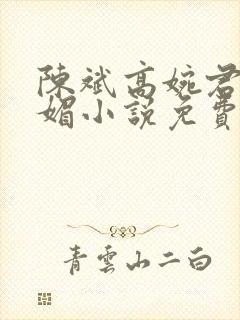 陳斌高婉君
媚小說免費
青雲山二白